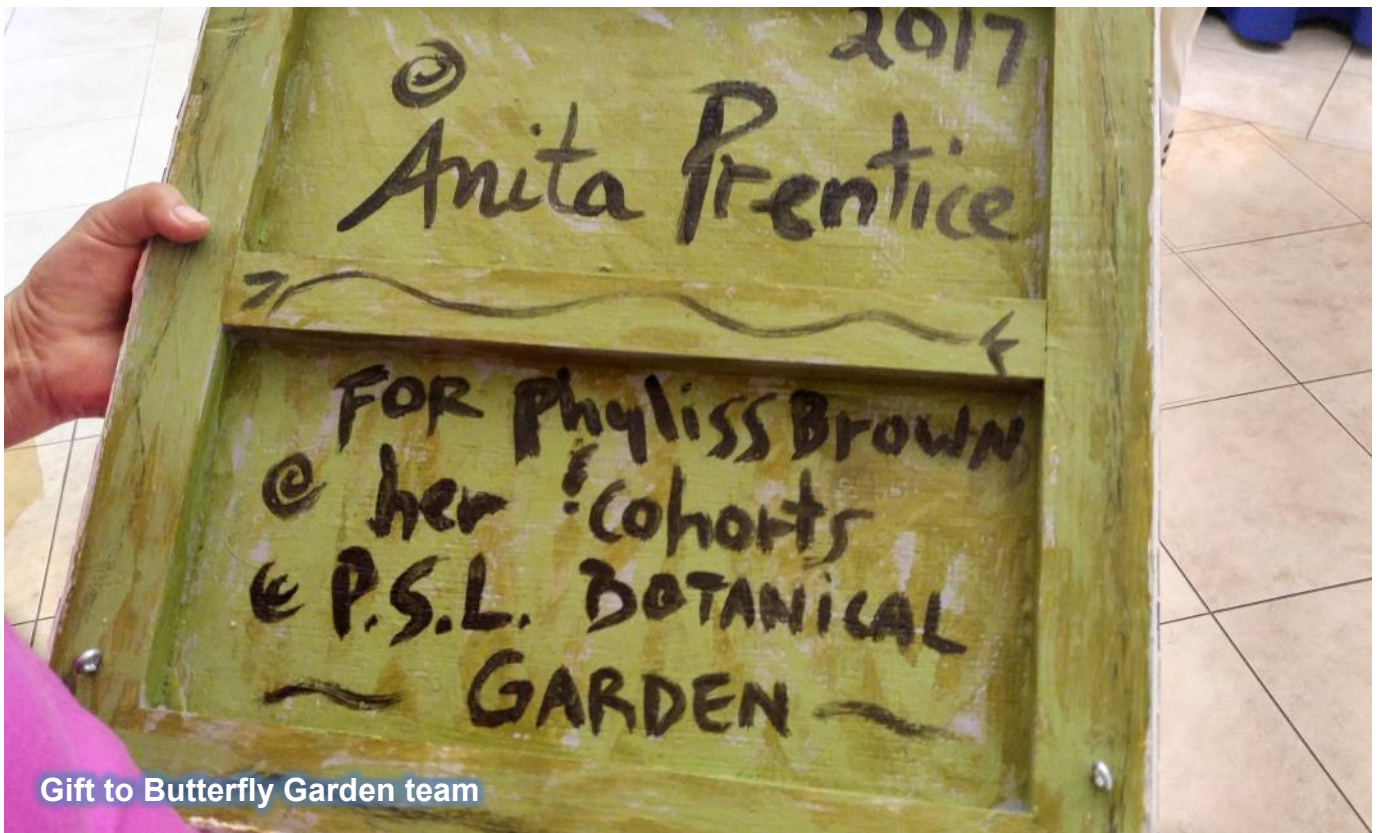 2017
© Anita Prentice
FOR Phyliss Brown
@ her cohorts
@ P.S.L. BOTANICAL
GARDEN
Gift to Butterfly Garden team